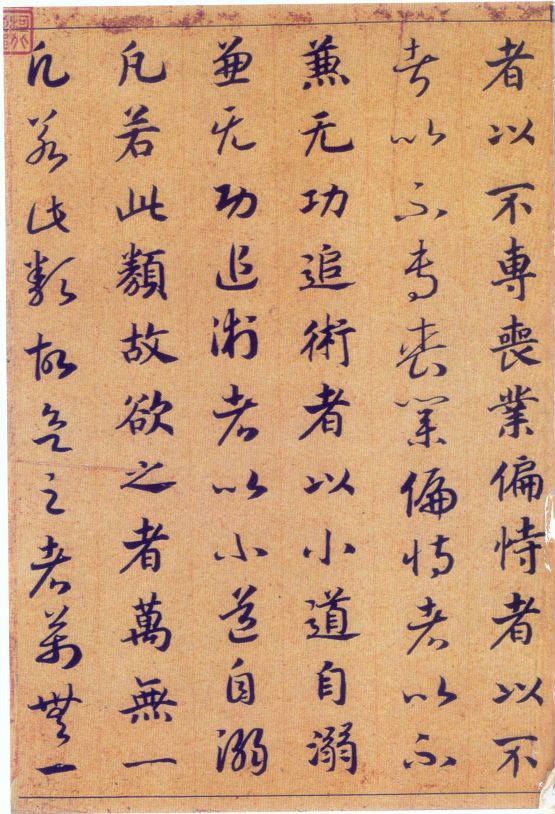 者以不専喪業偏恃者以不
者以不専喪業偏恃者以不
兼无功追術者以小道自溺
兼无功追術者以小道自溺
凡若此類故欲之者萬無一
凡若此類故欲之者萬無一